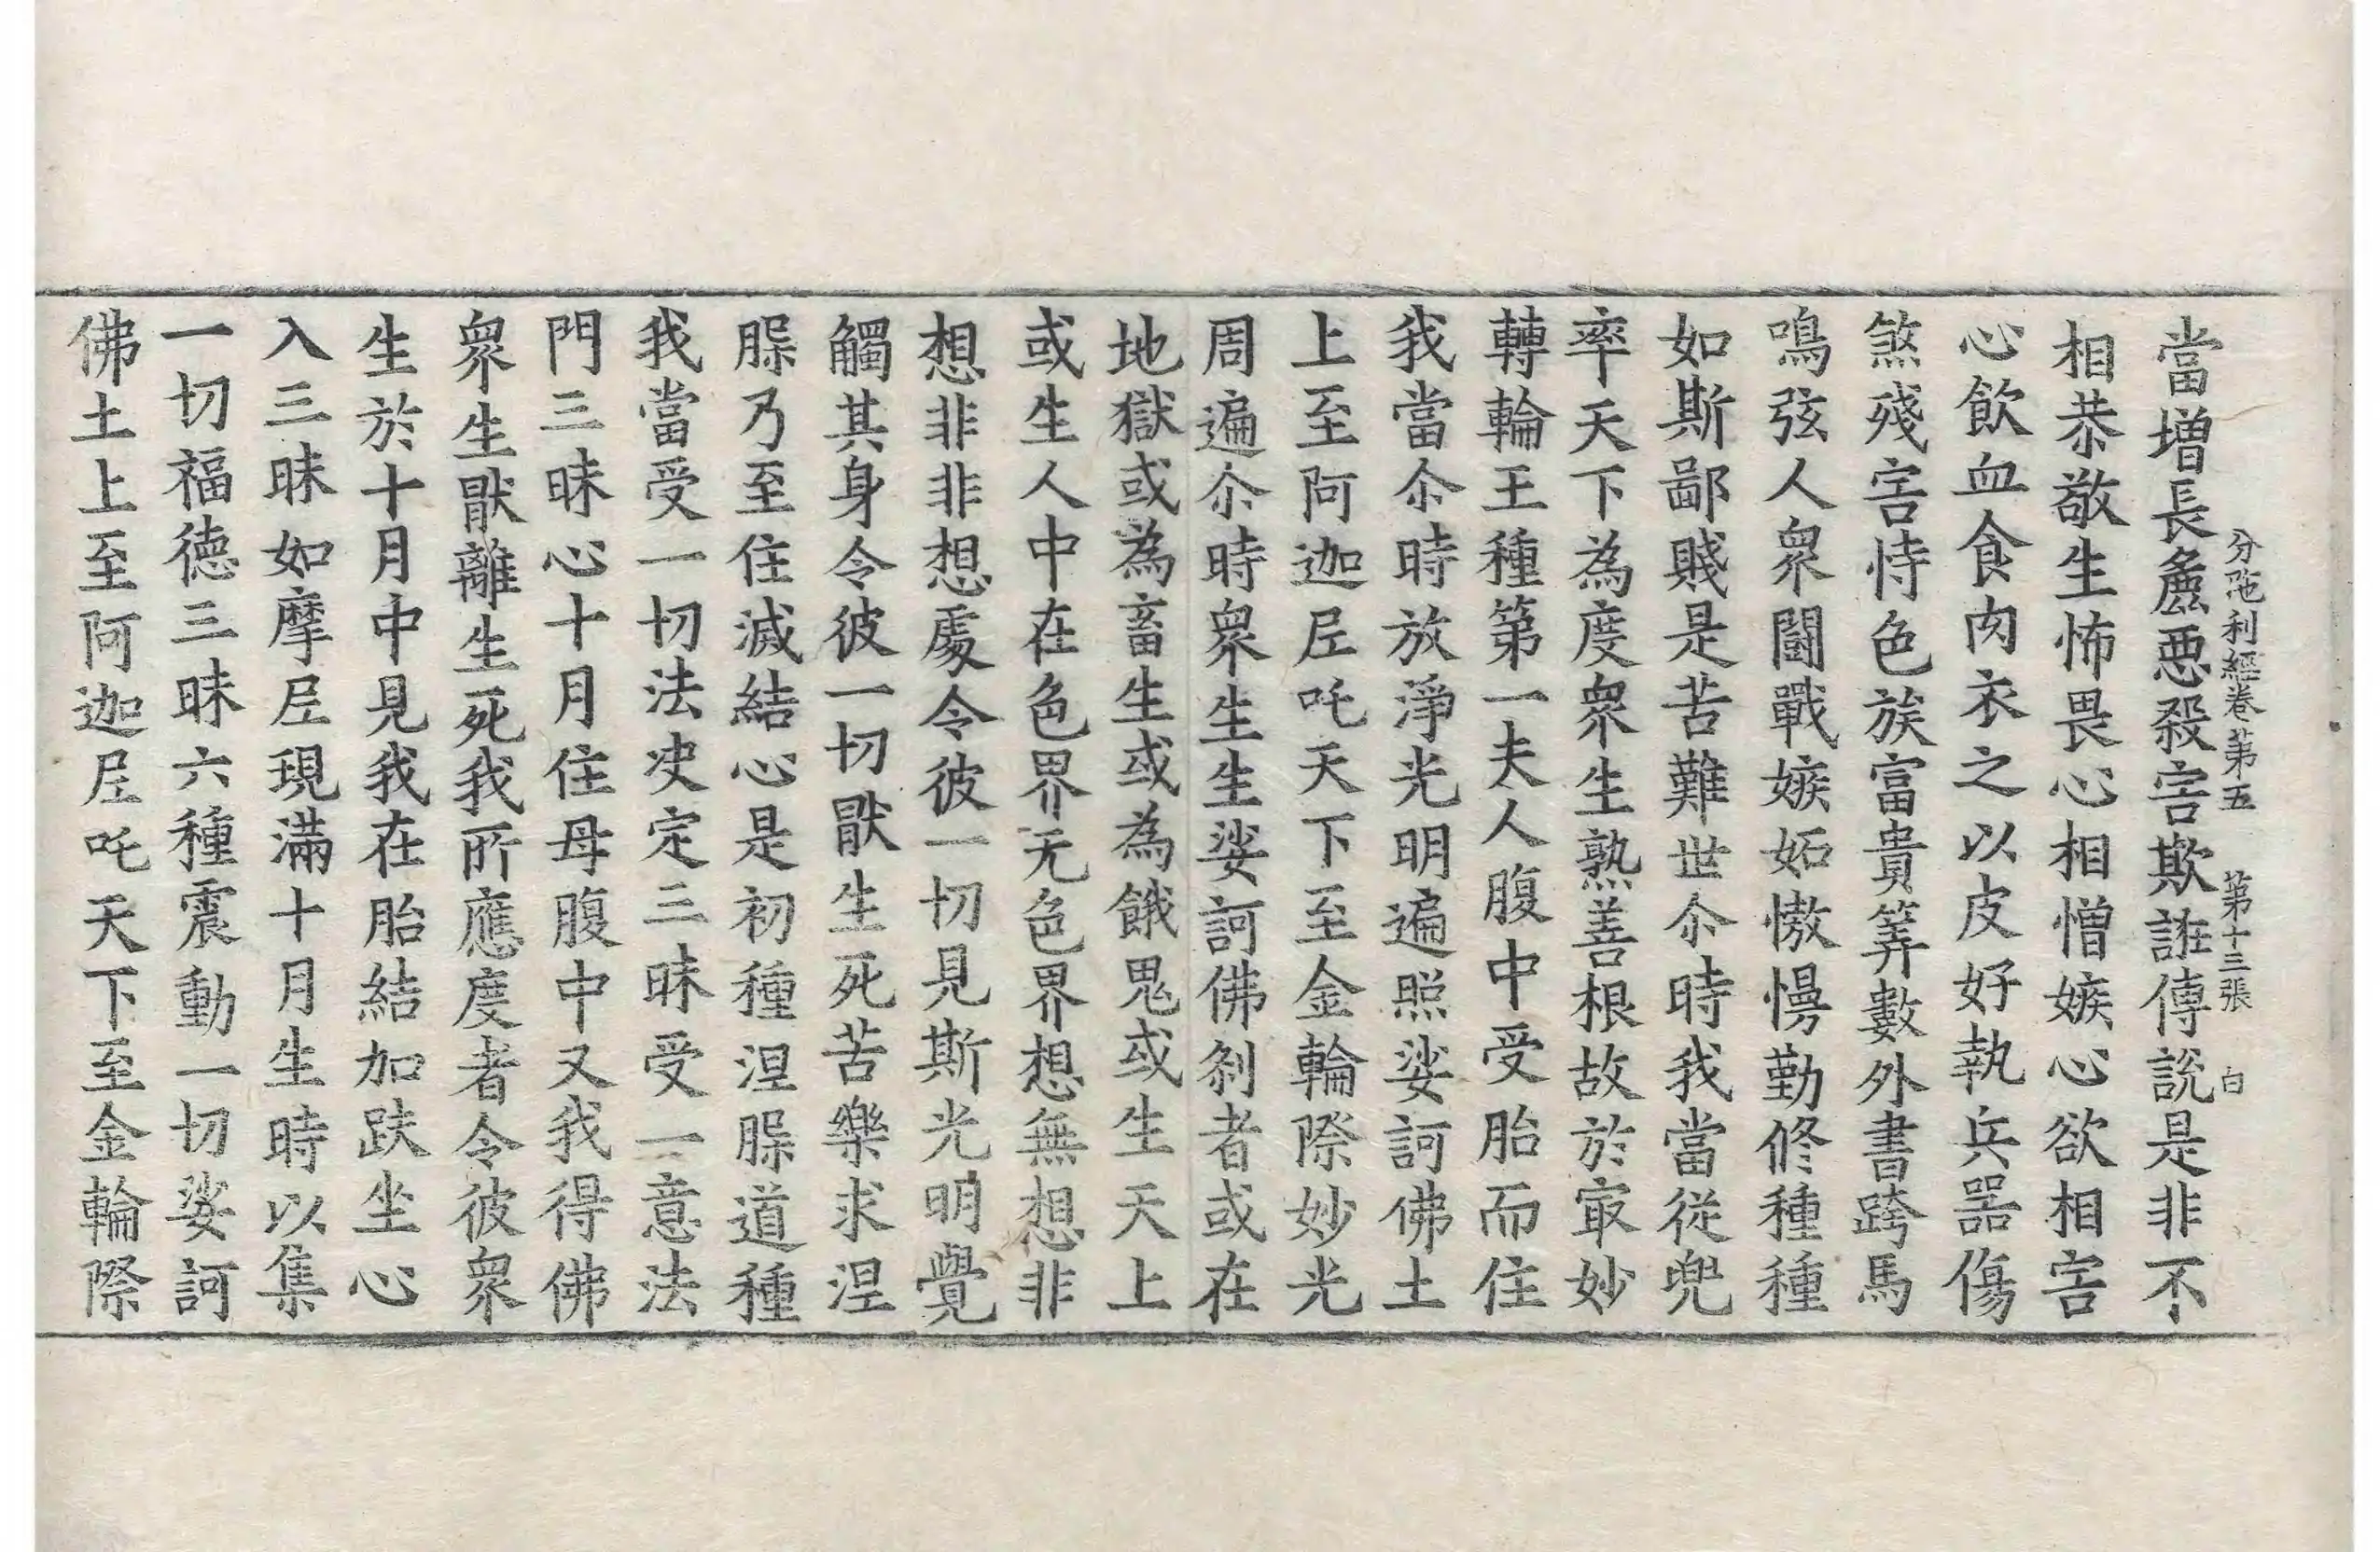 分陁利經卷第五　第十三張　白
當增長麁悪殺害欺誑傳說是非不
相恭敬生怖畏心相憎嫉心欲相害
心飲血食肉衣之以皮好執兵器傷
煞殘害恃色族富貴筭數外書跨馬
鳴弦人衆鬪戰嫉妬憿慢勤修種種
如斯鄙賤是苦難世尒時我當從兜
率天下為度衆生熟善根故於冣妙
轉輪王種第一夫人腹中受胎而住
我當尒時放淨光明遍照娑訶佛土
上至阿迦𡰱吒天下至金輪際妙光
周遍尒時衆生生娑訶佛刹者或在
地獄或為畜生或為餓鬼或生天上
或生人中在色界无色界想無想非
想非非想處令彼一切見斯光明覺
觸其身令彼一切猒生死苦樂求涅
𣊬乃至住滅結心是初種涅𣊬道種
我當受一切法决定三昧受一意法
門三昧心十月住母腹中又我得佛
衆生猒離生死我所應度者令彼衆
生於十月中見我在胎結加趺坐心
入三昧如摩𡰱現滿十月生時以集
一切福德三昧六種震動一切娑訶
佛土上至阿迦𡰱吒天下至金輪際